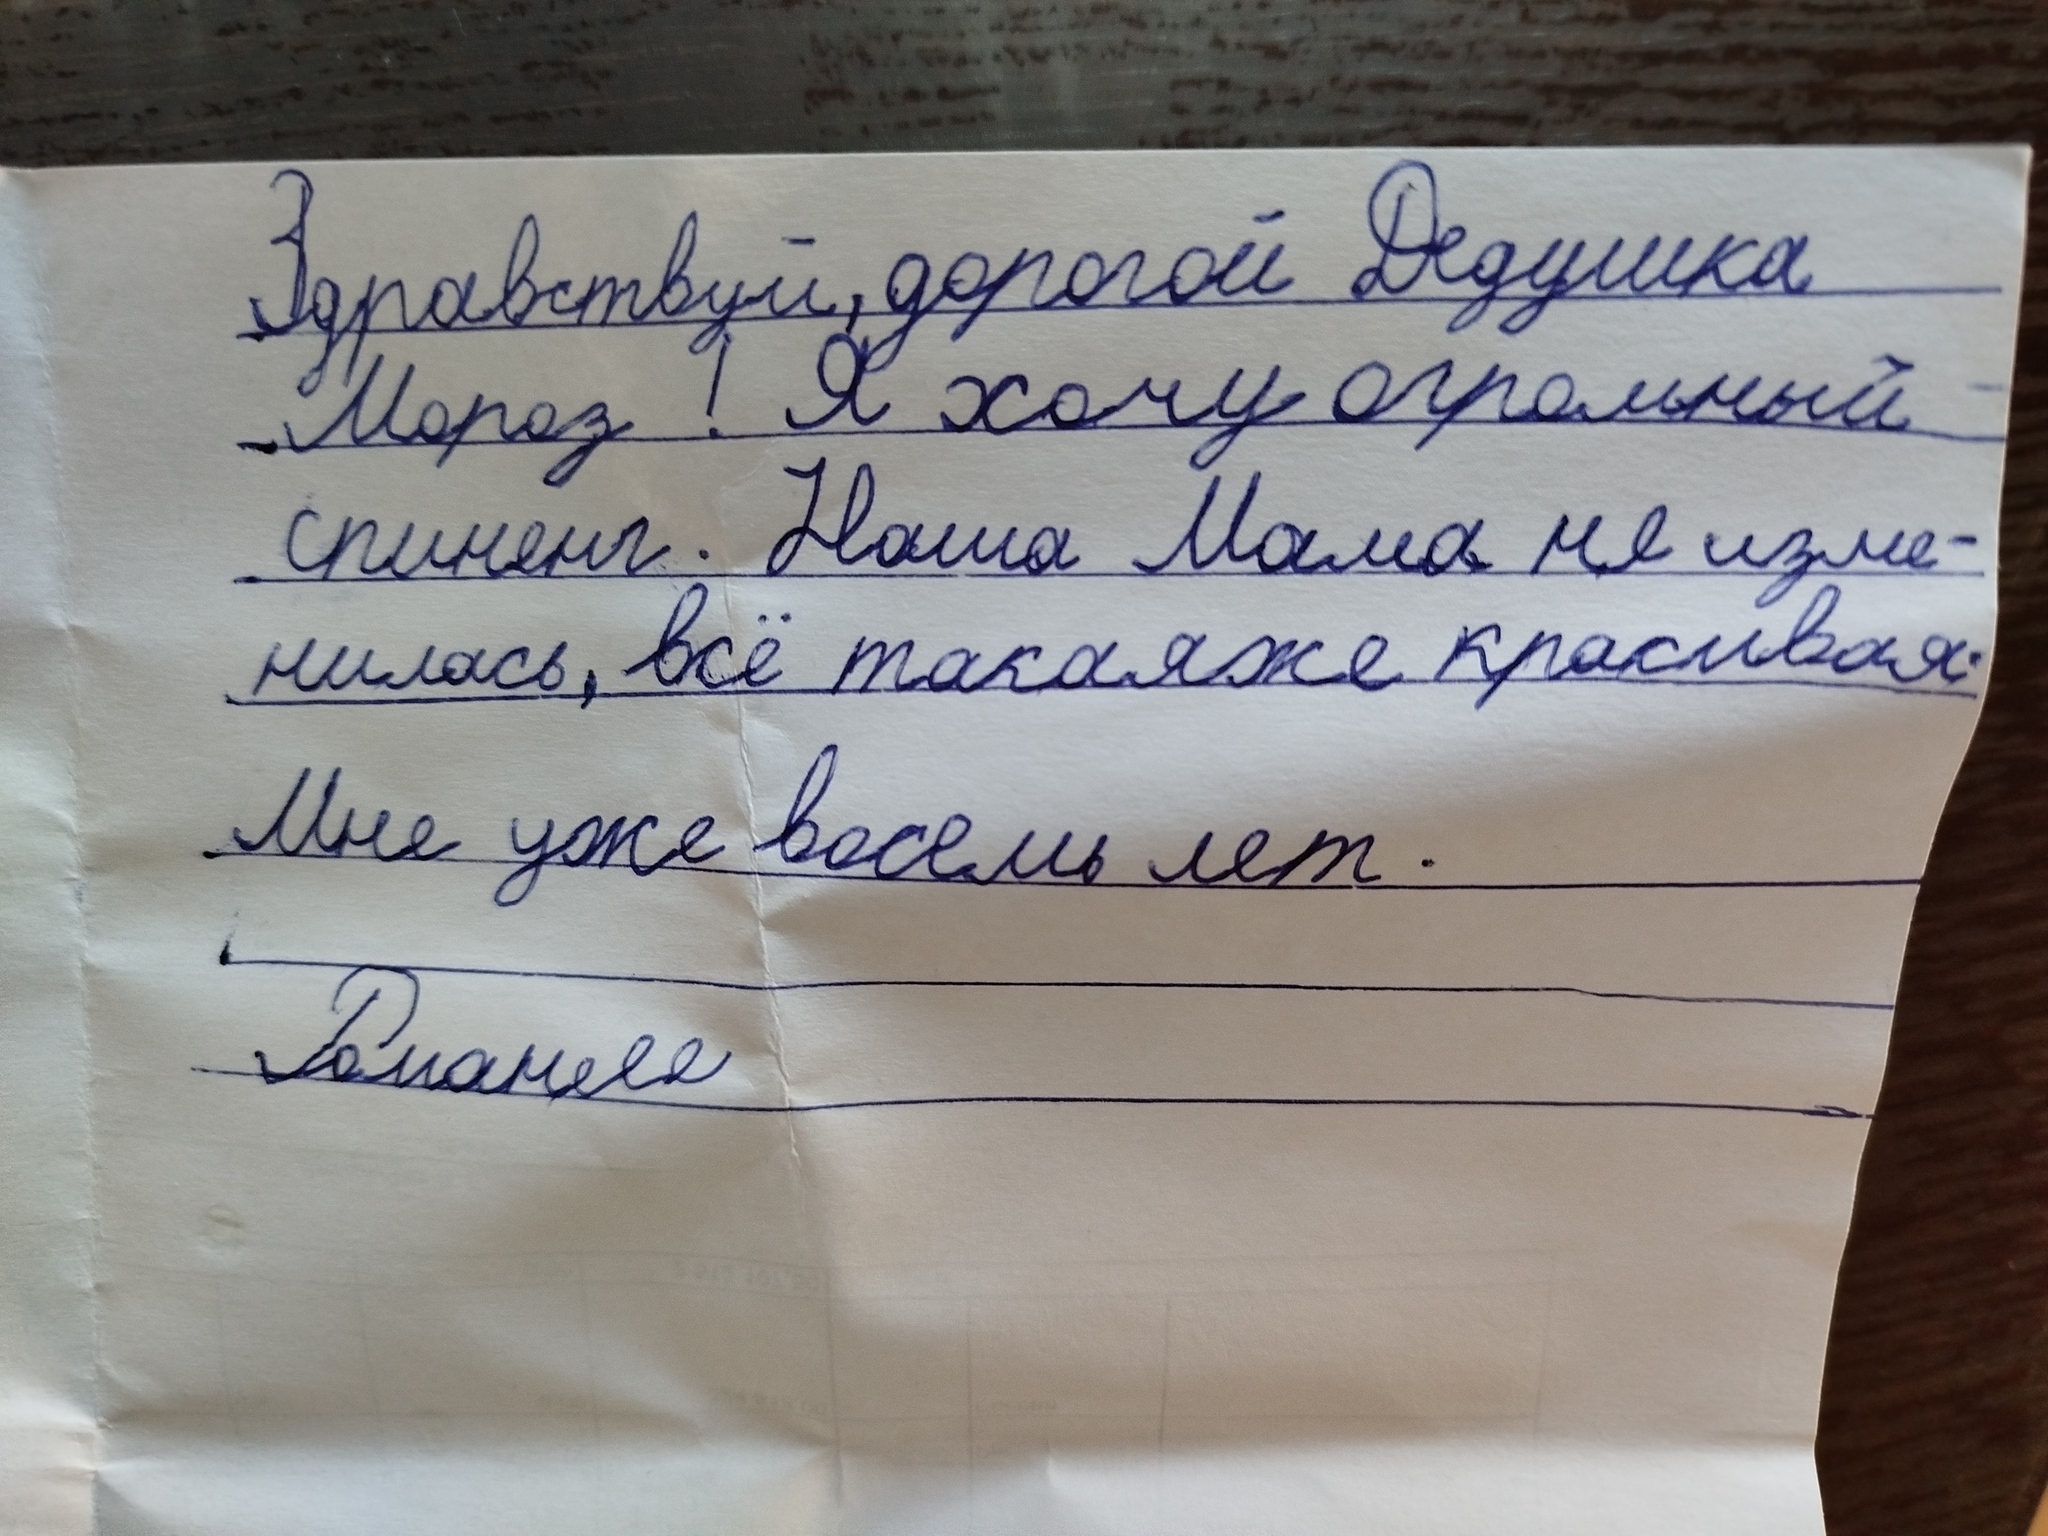 Здравствуй, дорогой Дедушка
Мороз! Я хочу огромный
спиненг. Наша Мама не изме-
нилась, всё такаяже красивая.
Мне уже восемь лет.